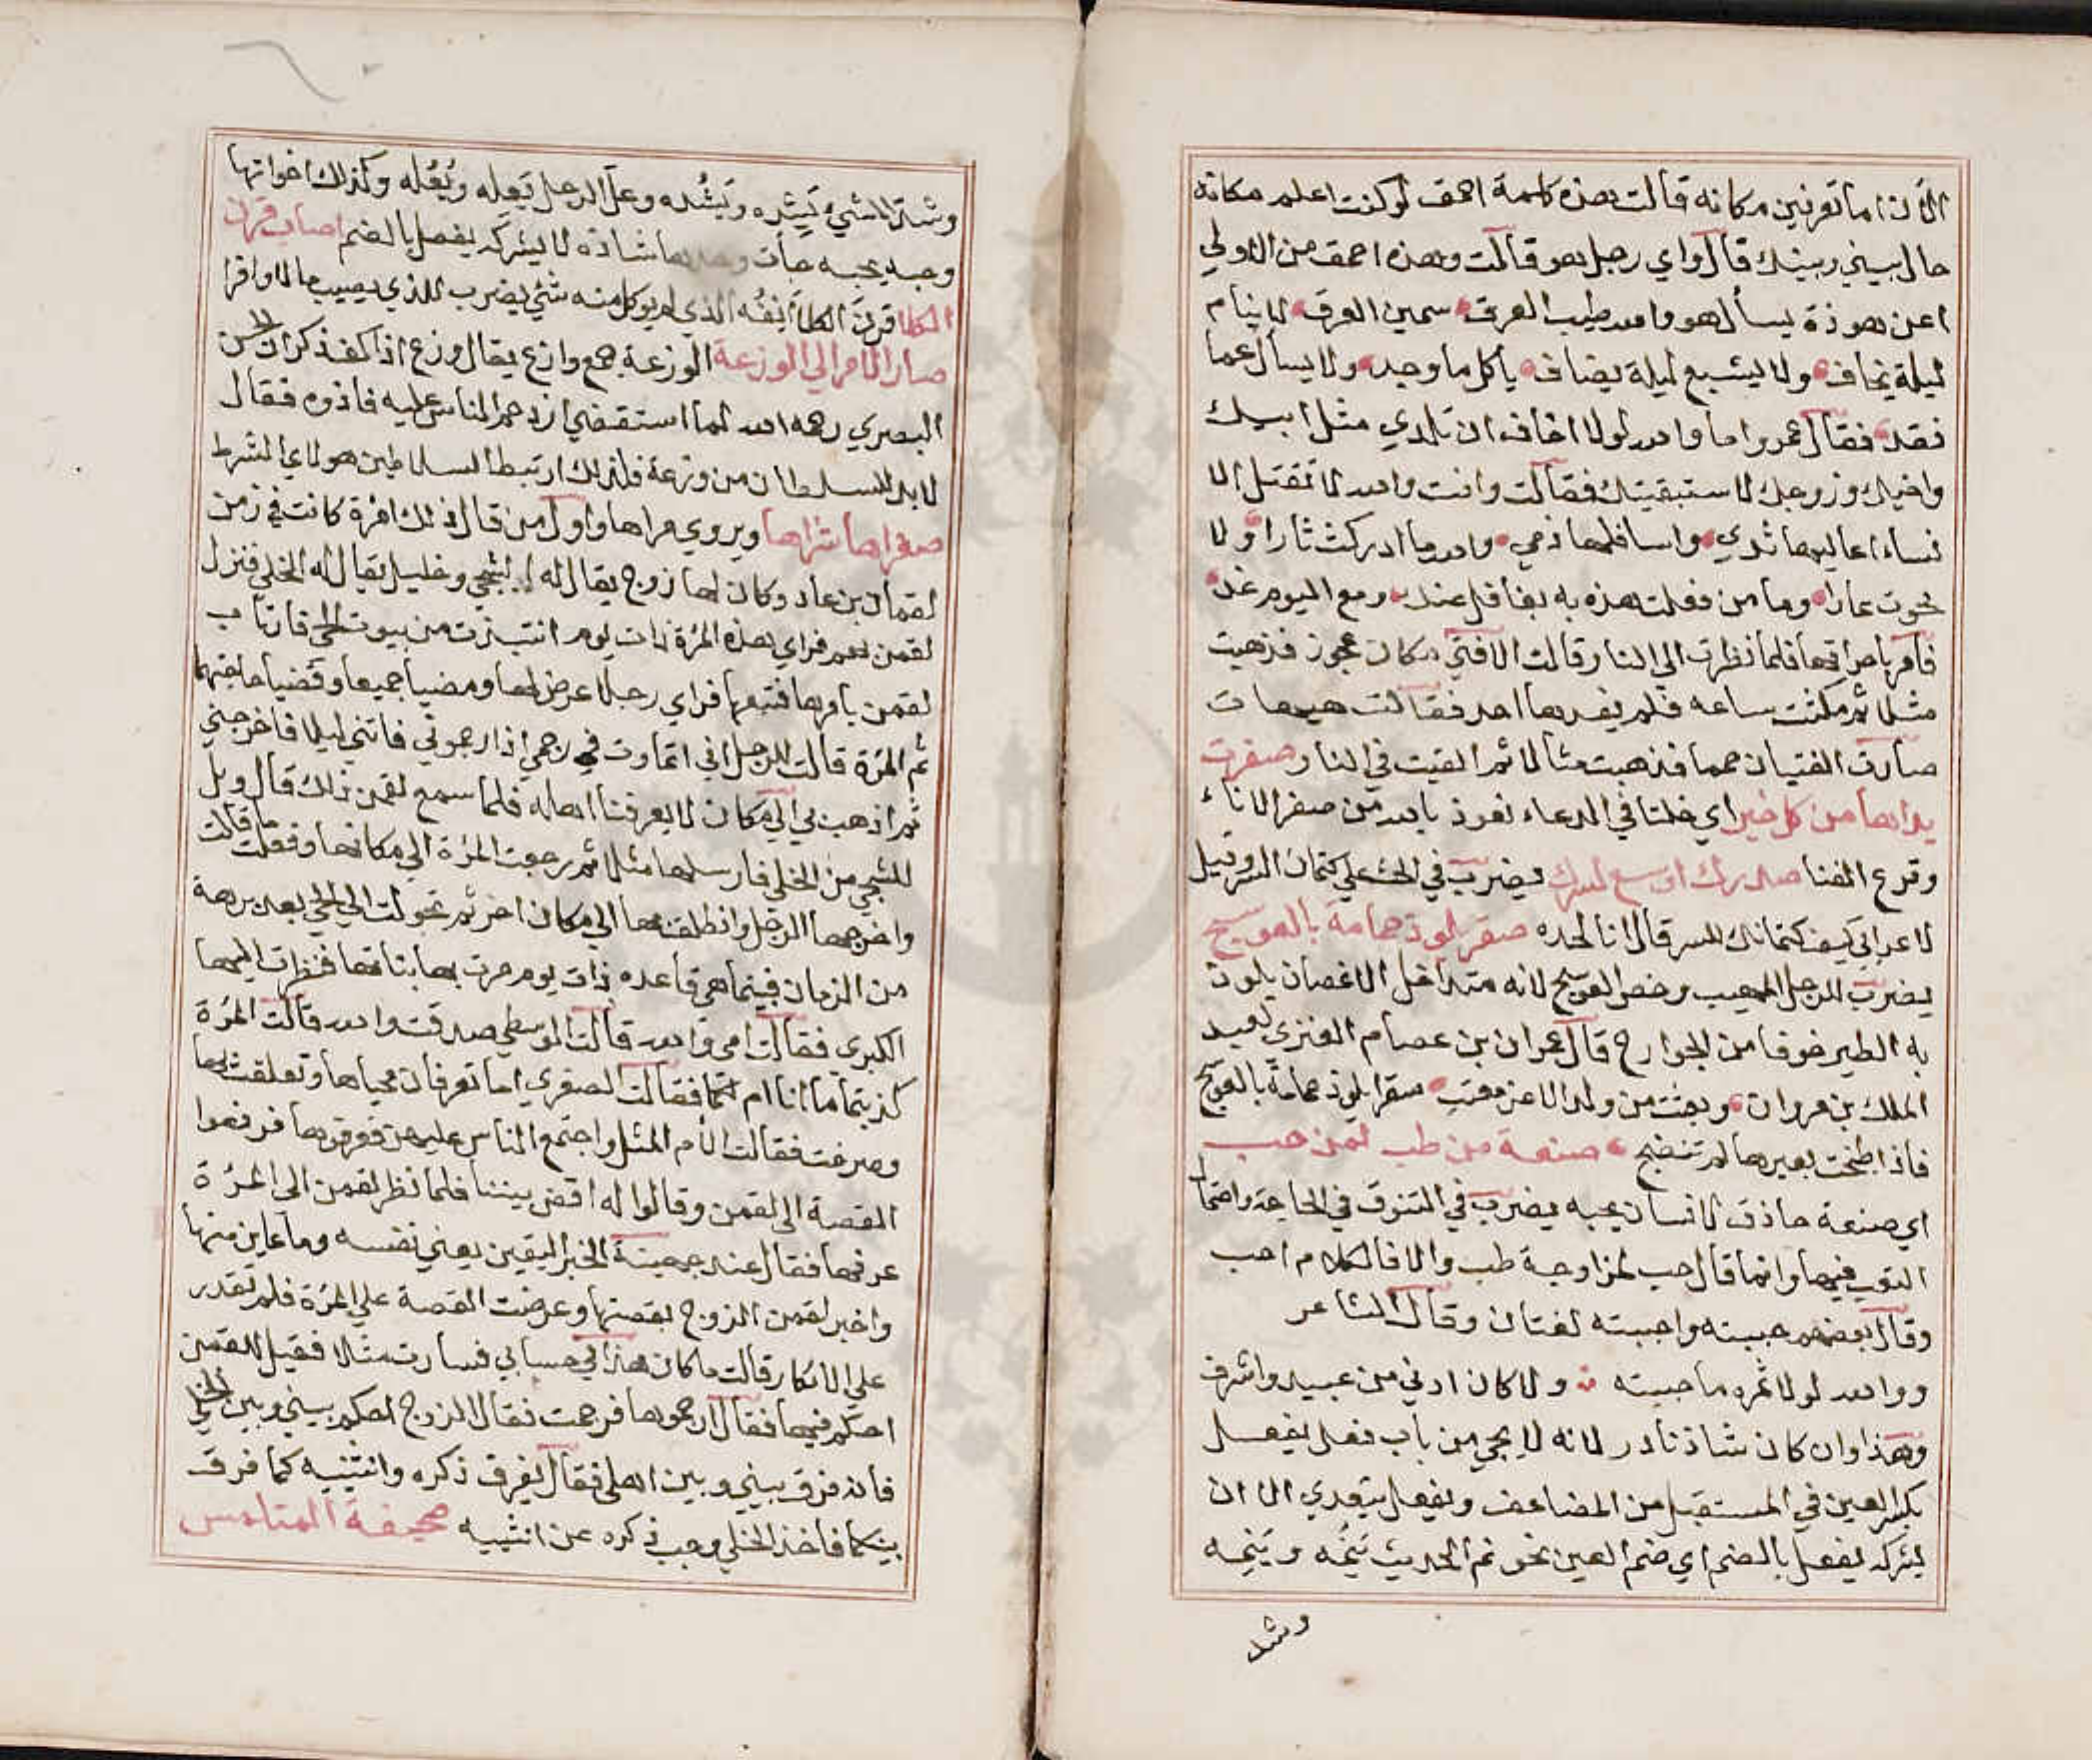 الان اما تعرفين مكانه قالت هذه كلمة احمق لو كنت اعلم مكانه
حال بيني وبينك قال واي رجل هو قالت وهذه احمق من الاولي
اعن هوذة يسأل هو والله طيب العرق سمين العرق لا ينام
ليلة يخاف ولا يشبع ليلة يضاف ياكل ما وجد ولا يسأل عما
فقد فقال عمرو اما والله لولا اخاف ان تلدي مثل ابيك
واخيك وزوجك لاستبقيتك فقالت وانت والله لا تقتل الا
نساء اعاليها ثدي واسافلها دمي والله ما ادركت ثارا ولا
محوت عارا وما من فعلت هذه به بغافل عنك ومع اليوم غد
فامر باحراقها فلما نظرت الي النار قالت الا فتي مكان عجوز فذهبت
مثلا ثم مكثت ساعه فلم يفدها احد فقالت هيهات
صارت الفتيان حمما فذهبت مثالا ثم القيت في النار صفرت
يداهما من كل خير اي خلتا في الدعاء نعوذ بالله من صفر الاناء
وقرع الفنا صدرك اوسع لسرك يضرب في الحث علي كتمان السر وقيل
لاعرابي كيف كتمانك للسر قال انا لحده صقر يلوذ حمامه بالعوسج
يضرب للرجل المهيب وخص العوسج لانه متداخل الاغصان يلوذ
به الطير خوفا من الجوارح قال عمران بن عصام العنزي لعبد
الملك بن مروان وبعثت من ولد الاعز معتب صقرا يلوذ حمامة بالعوسج
فاذا طبخت بعيرها لم تنضج صنعة من طب لمن حب
اي صنعة حاذق لانسان يحبه يضرب في التنوق في الحاجة واحتمال
التعب فيها وانما قال حب لمزاوجة طب والا فالكلام احب
وقال بعضهم حببته واحببته لغتان وقال الشاعر
ووالله لولا تمره ما حببته ولا كان ادني من عبيد واشرف
وهذا وان كان شاذ نادر لانه لا يجي من باب فعل يفعل
بكسر العين في المستقبل من المضاعف ويفعل يتعدي الا ان
يشركه يفعل بالضم اي ضم العين نحو نم الحديث يَنُمُّه ويَنِمه
وشد
وشد الشيء يَشِده ويَشُده وعل الرجل يَعِله ويَعُله وكذلك اخواتها
وحبه يحبه جأت وحدها شاذه لا يشركه يفعل بالضم اصاب قرن
الكلا قرن الكلا أنفُه الذي لم يوكل منه شئ يضرب للذي يصيب مالا وافرا
صار الامر الي الوزعة الوزعة جمع وازع يقال وزع اذا كف ذكر ان الحسن
البصري رحمه الله لما استقضي ازدحم الناس عليه فاذوه فقال
لابد للسلطان من وزعة فلذلك ارتبط السلاطين هولاي الشرط
صغراها شراها ويروي مراها واول من قال ذلك امرة كانت في زمن
لقمان بن عاد وكان لها زوج يقال له الشجي وخليل يقال له الخلي فنزل
لقمن بهم فراي هذه المرٔة ذات يوم انتبذت من بيوت الحي فارتاب
لقمن بامرها فتبعها فراي رجلا عرض لها ومضيا جميعا وقضيا حاجتهما
ثم المرٔة قالت للرجل اني اتماوت في رجمي اذا رجموني فاتني ليلا فاخرجني
ثم اذهب بي الي مكان لا يعرفنا اهله فلما سمع لقمن ذلك قال ويل
للشجي من الخلي فارسلها مثلا ثم رجعت المرٔة الي مكانها وفعلت ما قالت
واخرجها الرجل وانطلق بها الي مكان اخر ثم تحولت الي الحي بعد برهة
من الزمان فبينما هي قاعده ذات يوم مرت بها بناتها فنظرت اليها
الكبري فقالت امي والله قالت الوسطي صدقت والله قالت المرٔة
كذبتما ما انا ام لكما فقالت الصغري اما تعرفان محياها وتعلقت بها
وصرخت فقالت الأم المثل واجتمع الناس عليهن فعرفوها فرفعوا
القصة الي لقمن وقالوا له اقض بيننا فلما نظر لقمن الي المرٔة
عرفها فقال عند جهينة الخبر اليقين يعني نفسه وما عاين منها
واخبر لقمن الزوج بقصتها وعرضت القصة علي المرٔة فلم تقدر
علي الانكار قالت ما كان هذا في حسابي فسارت مثلا فقيل للقمن
احكم فيها فقال ارجموها فرجمت فقال الزوج احكم بيني وبين الخلي
فانه فرق بيني وبين اهلي فقال يفرق ذكره وانثييه كما فرق
بينكما فاخذ الخلي وجب ذكره عن انثييه صحيفة المتلمس